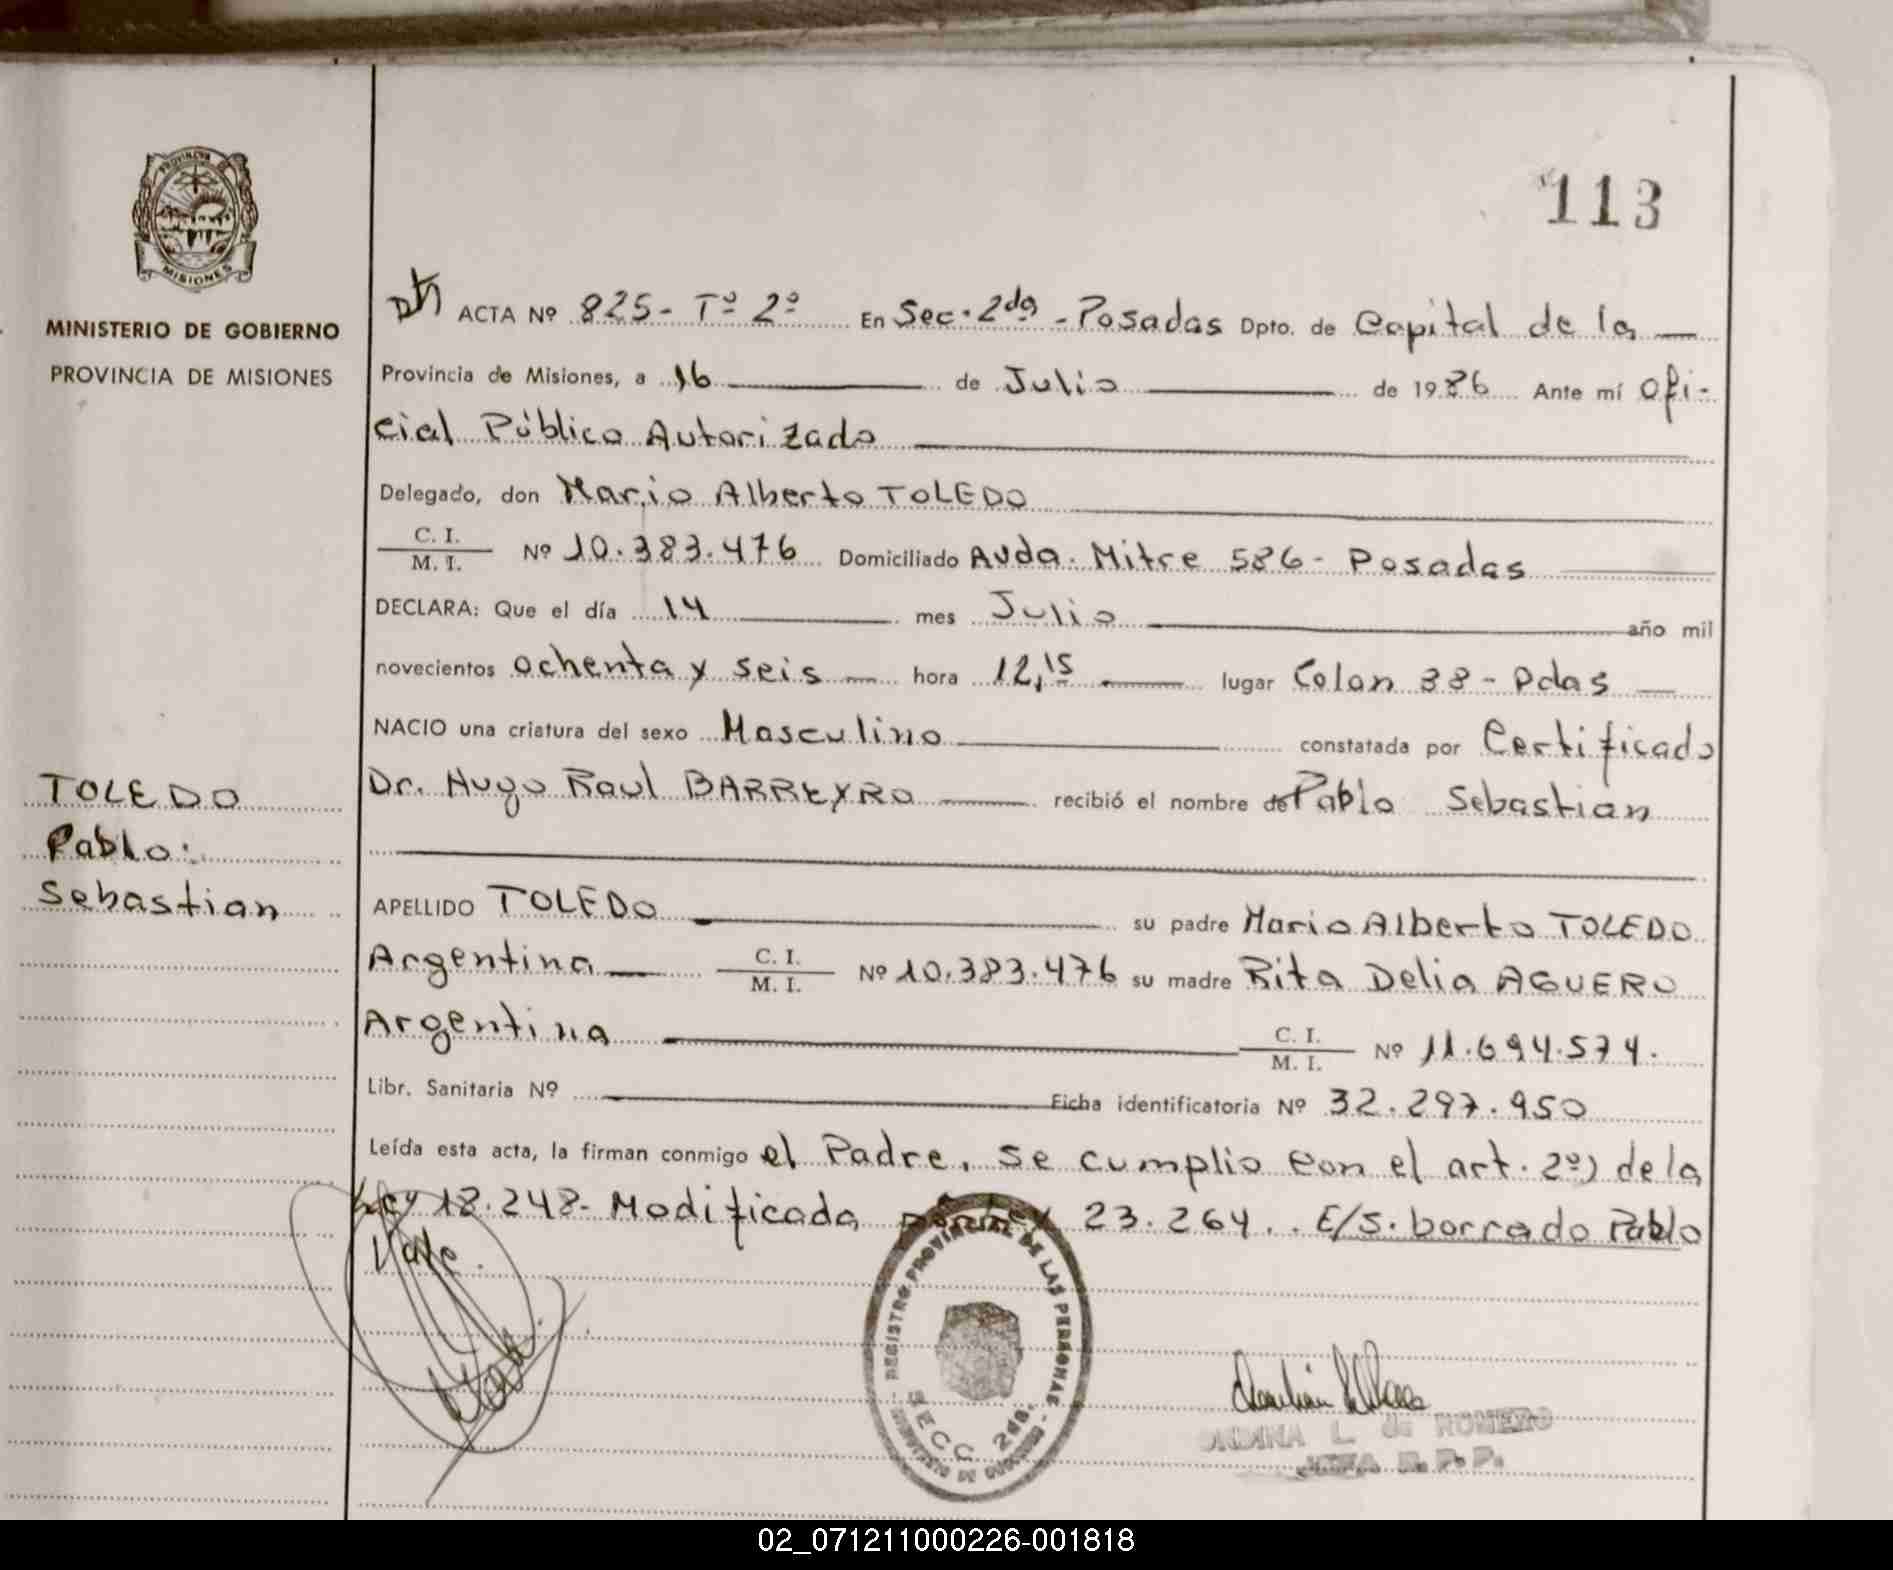 113
PROVINCIA DE
MISIONES
MINISTERIO DE GOBIERNO
PROVINCIA DE MISIONES
TOLEDO
Pablo:
Sebastian
ACTA Nº 825- Tº 2º En Sec. 2da - Posadas Dpto. de Capital de la
Provincia de Misiones, a 16 de Julio de 1986 Ante mí Ofi-
cial Público Autorizado
Delegado, don Mario Alberto TOLEDO
C. I.
M. I. Nº 10.383.476 Domiciliado Avda. Mitre 586- Posadas
DECLARA: Que el día 14 mes Julio año mil
novecientos ochenta y seis hora 12,15 lugar Colon 38 - Pdas
NACIO una criatura del sexo Masculino constatada por Certificado
Dr. Hugo Raul BARREYRO recibió el nombre de Pablo Sebastian
APELLIDO TOLEDO su padre Mario Alberto TOLEDO
Argentina C. I.
M. I. Nº 10.383.476 su madre Rita Delia AGUERO
Argentina C. I.
M. I. Nº 11.694.574.
Libr. Sanitaria Nº Ficha identificatoria Nº 32.297.950
Leída esta acta, la firman conmigo el Padre. Se cumplio con el art. 2º) de la
Ley 18.248- Modificada por Ley 23.264.. E/S. borrado Pablo
Vale.
REGISTRO PROVINCIAL DE LAS PERSONAS
SECC. 2da.
MINISTERIO DE GOBIERNO
L. de ROMERO
JEFA R.P.P.
02_071211000226-001818